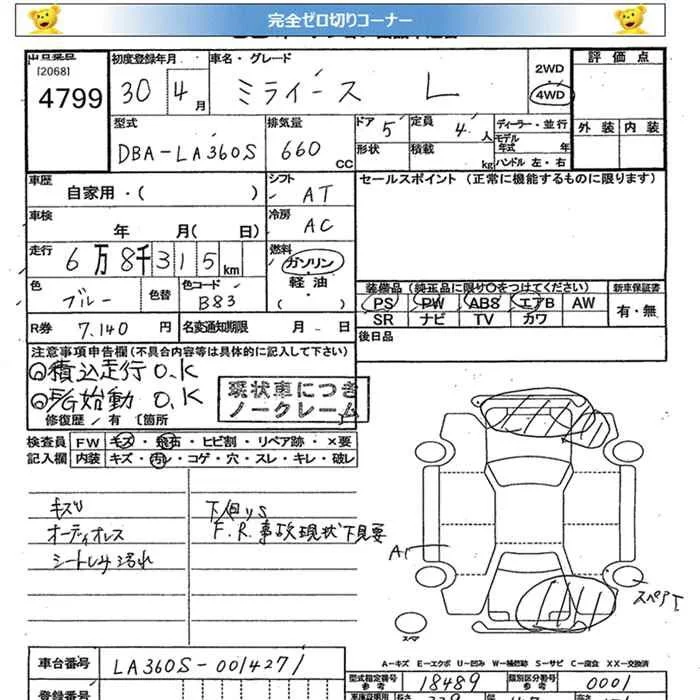 完全ゼロ切りコーナー
出品番号
[2068]
4799
初度登録年月
30 4 月
車名・グレード
ミライース L
2WD
4WD
評価点
外装 内装
型式
DBA-LA360S
排気量
660 CC
ドア 5
形状
定員 4 人
積載 kg
ディーラー・並行
モデル
年式 年
ハンドル 左・右
車歴
自家用・( )
シフト
AT
セールスポイント (正常に機能するものに限ります)
車検
年 月( 日)
冷房
AC
走行
6万8千315km
燃料
ガソリン
軽油
・( )
色
ブルー
色替
色コード
B83
装備品 (純正品に限り○をつけてください)
PS PW ABS エアB AW
SR ナビ TV カワ
新車保証書
有・無
R券 7,140 円
名変通知期限 月 日
後日品
注意事項申告欄(不具合内容等は具体的に記入して下さい)
積込走行 O.K
E/G始動 O.K
現状車につき
ノークレーム
修復歴/有 〔箇所
検査員 FW キズ・飛石・ヒビ割・リペア跡・×要
記入欄 内装 キズ・汚レ・コゲ・穴・スレ・キレ・破レ
キズU
オーディオレス
シートしみ汚れ
下回りS
F.R.事故現状下見要
A1
スペアT
スペア
A-キズ E-エクボ U-凹み W-補修跡 S-サビ C-腐食 XX-交換済
車台番号
LA360S-0014271
登録番号
型式指定番号
参考
18489
類別区分番号
参考
0001
長さ